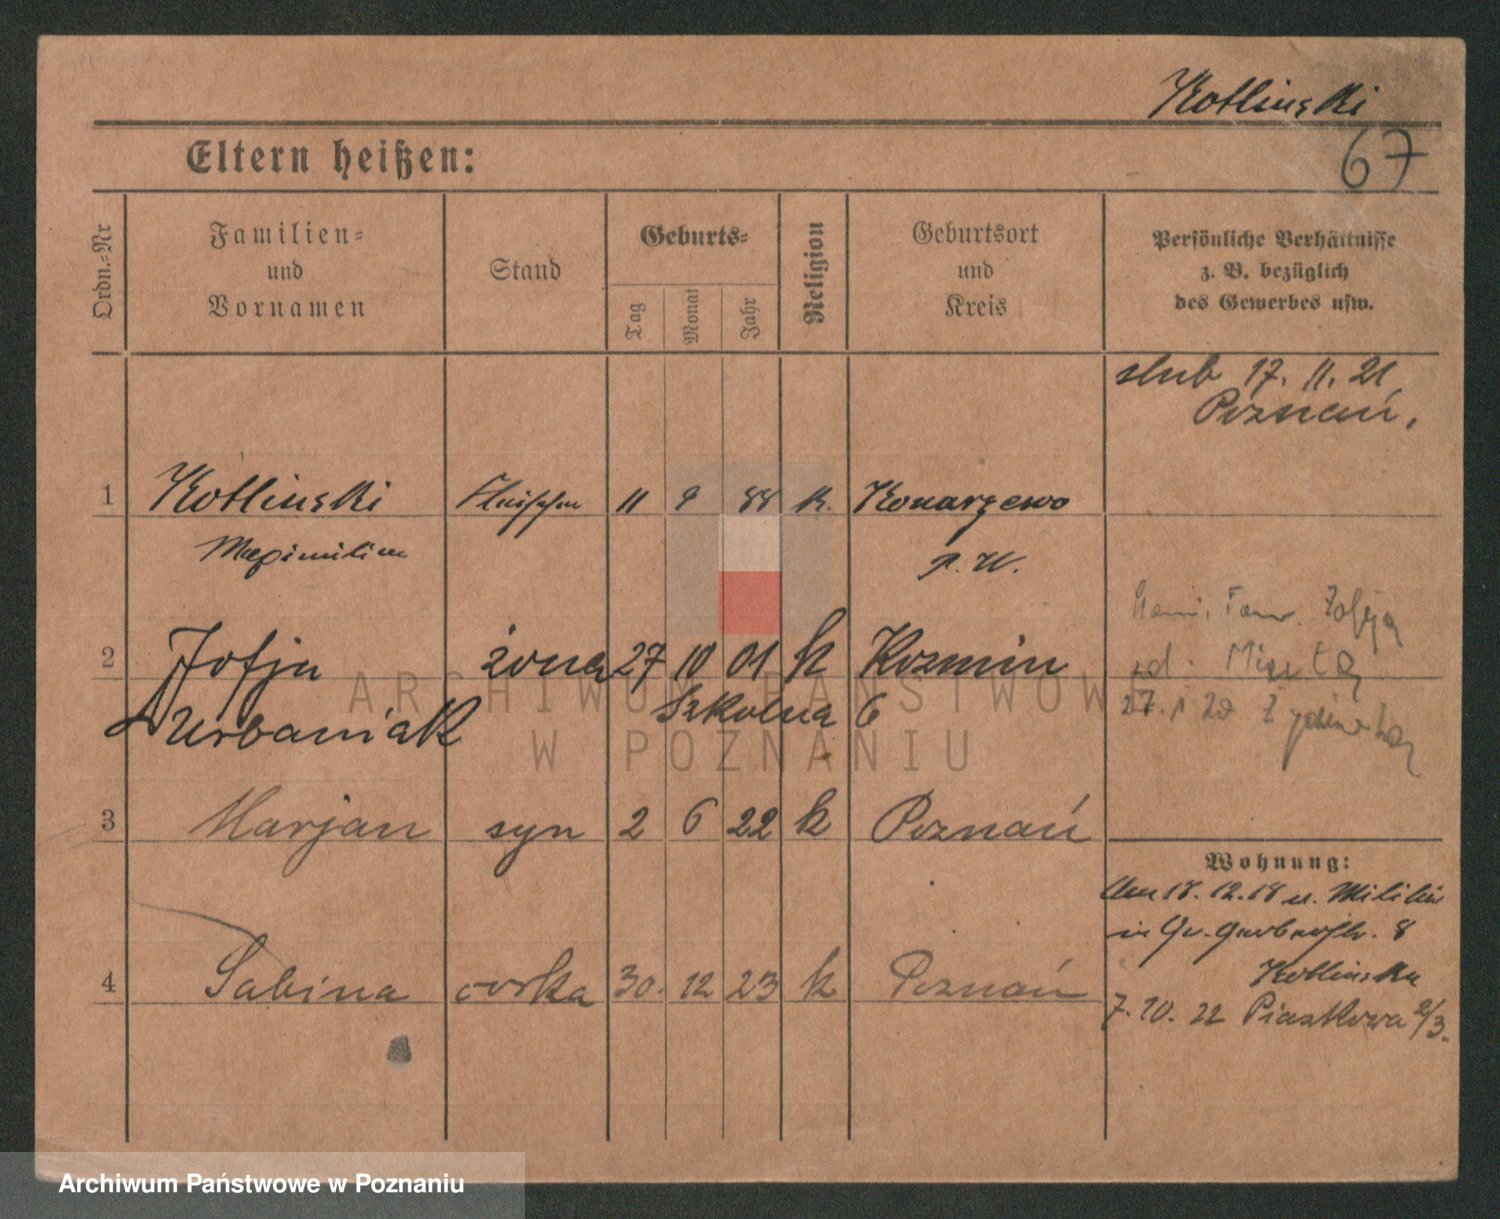 Kotlinski
67
Eltern heißen:
Ordn.-Nr
Familien-
und
Vornamen
Stand
Geburts-
Tag
Monat
Jahr
Religion
Geburtsort
und
Kreis
Persönliche Verhältnisse
z. B. bezüglich
des Gewerbes usw.
slub 17. 11. 21
Poznań,
1 Kotlinski 11 9 88 K. Konarzewo
p. W.
2 Zofja żona 27 10 01 k Kozmin
Urbaniak Szkolna 6
Zofja
27.
3 Marjan syn 2 6 22 k Poznań
Wohnung:
18. 12. 18 v. Militär
in Gr. Gerberstr. 8
Kotlinska
4 Sabina córka 30. 12 23 k Poznań
7. 10. 22 Piaskowa 2/3.
ARCHIWUM PAŃSTWOWE
W POZNANIU
Archiwum Państwowe w Poznaniu